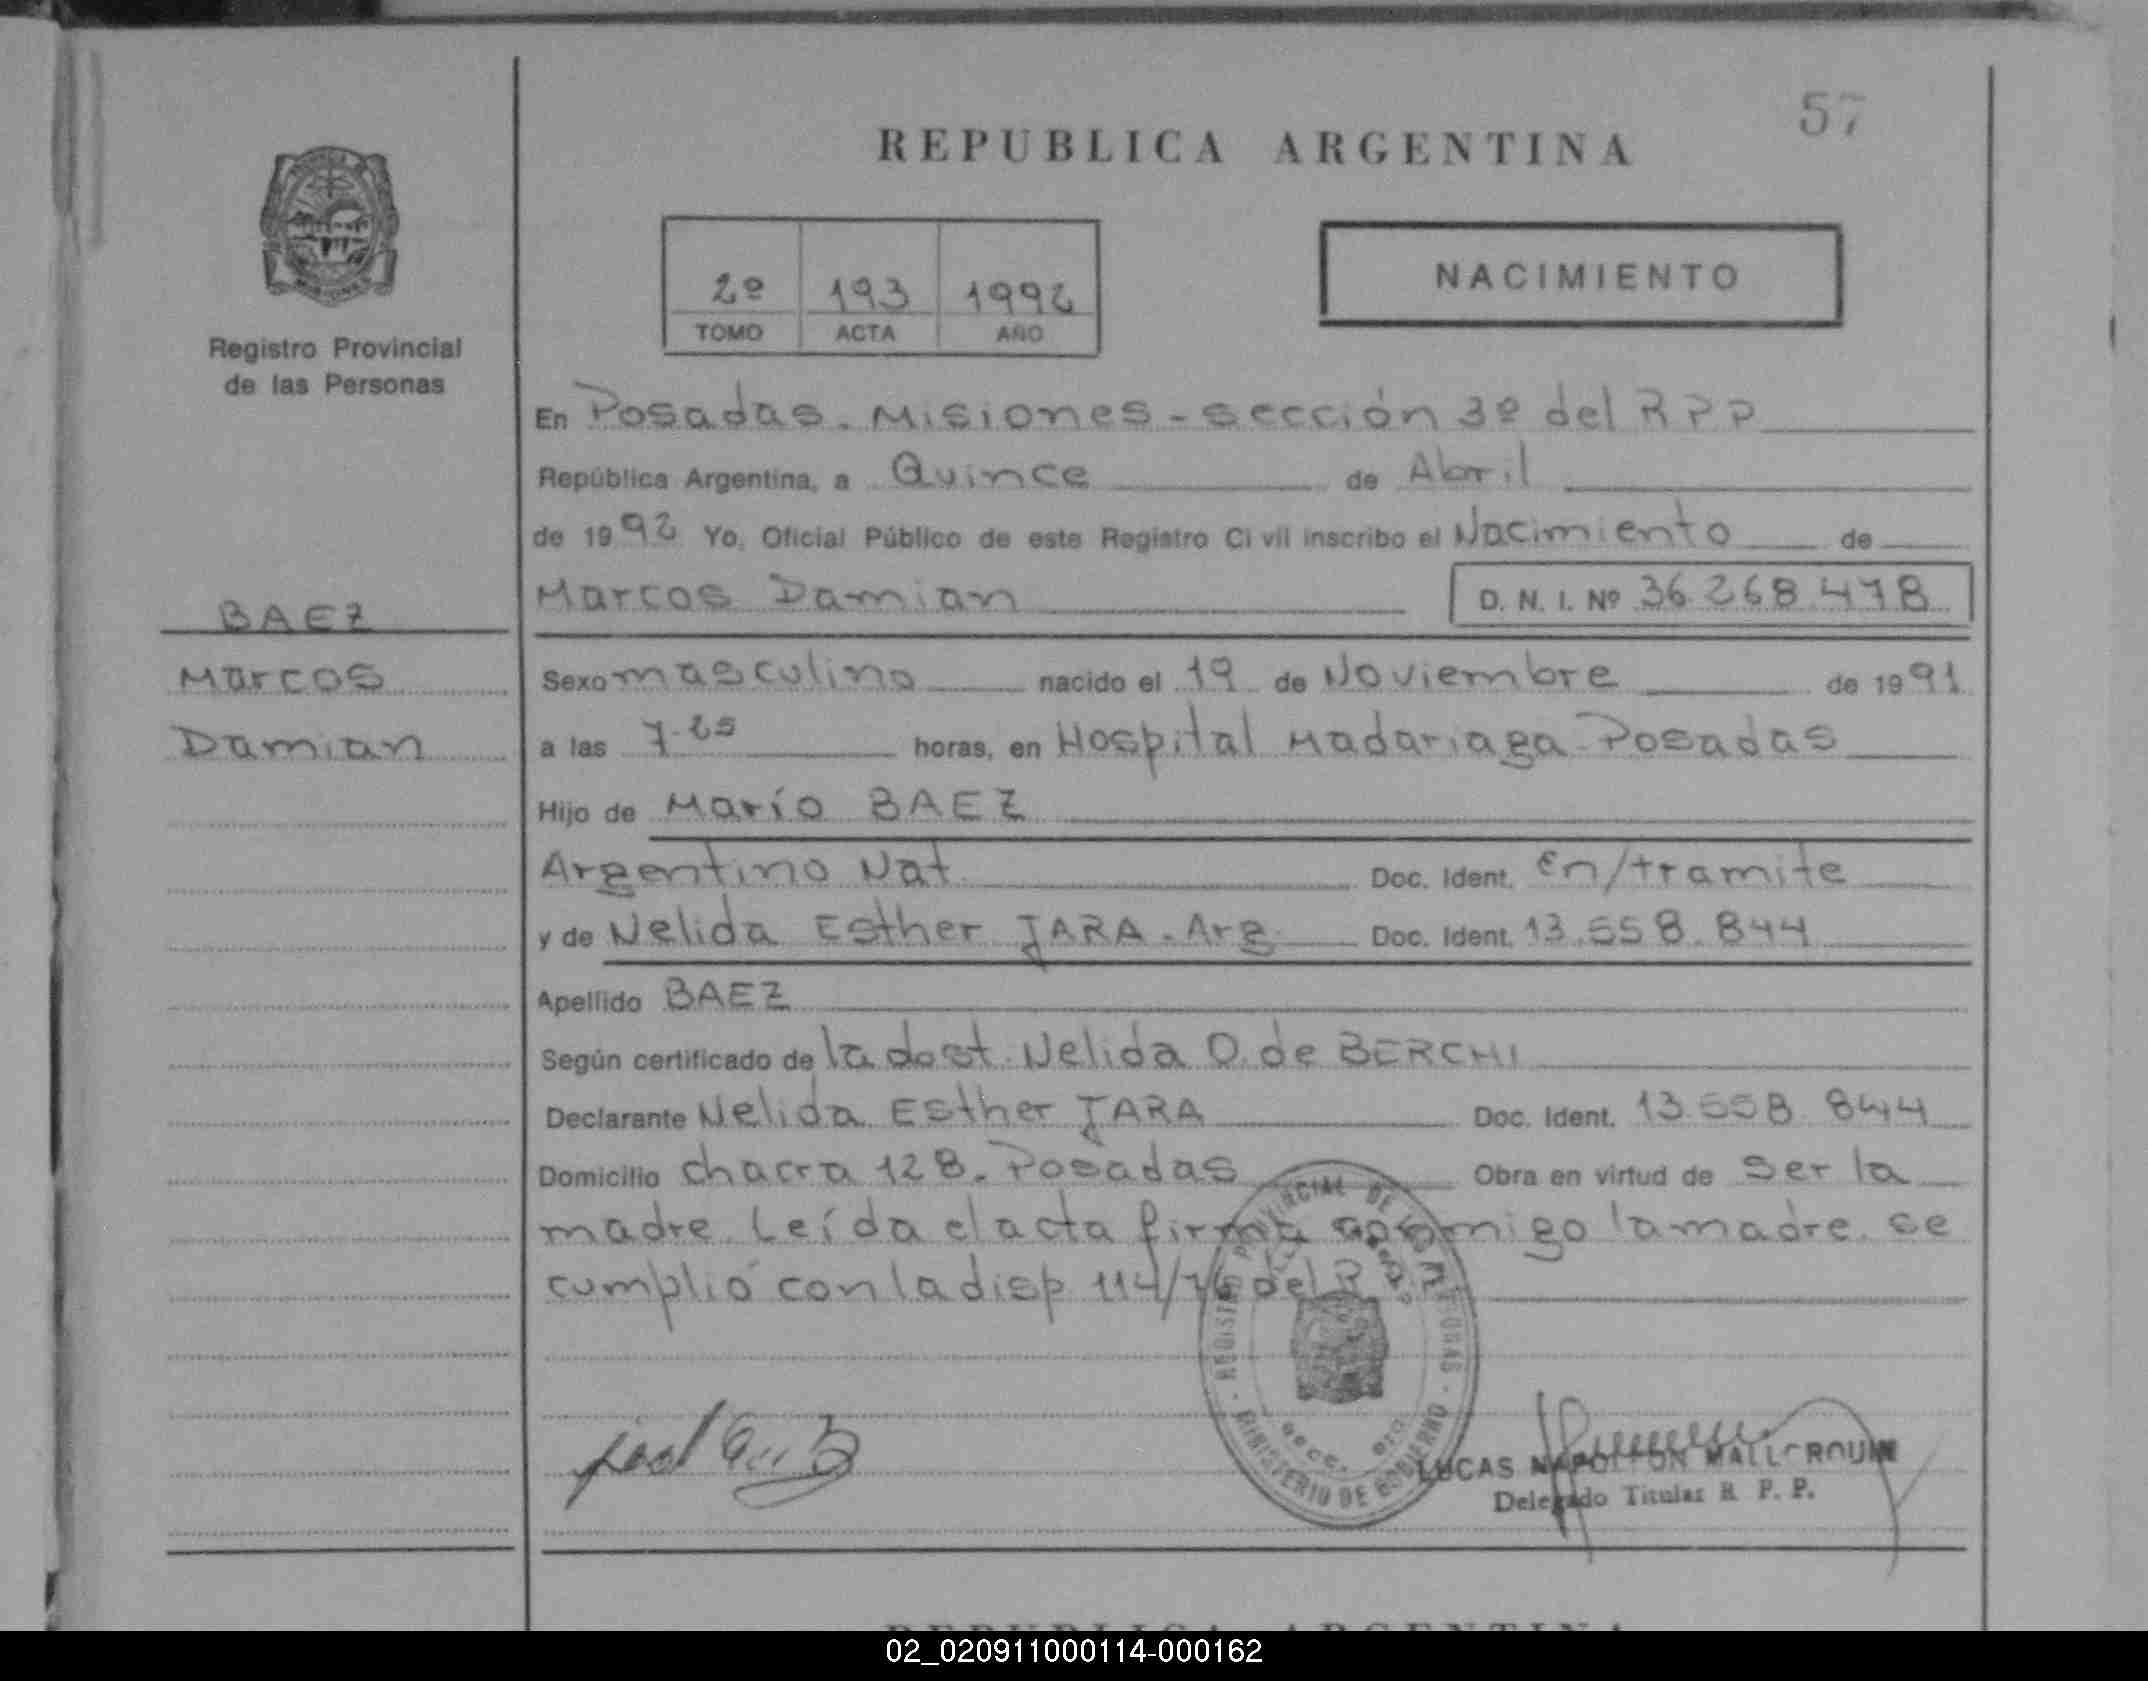 57
REPUBLICA ARGENTINA
2º 193 1992
TOMO ACTA AÑO
NACIMIENTO
Registro Provincial
de las Personas
En Posadas. Misiones - sección 3º del RPP
República Argentina, a Quince de Abril
de 1992 Yo, Oficial Público de este Registro Ci vil inscribo el Nacimiento de
Marcos Damian D. N. I. Nº 36.268.478
BAEZ
Marcos
Damian
Sexo masculino nacido el 19 de Noviembre de 1991
a las 7.25 horas, en Hospital Madariaga-Posadas
Hijo de Marío BAEZ
Argentino Nat. Doc. Ident. En/tramite
y de Nelida Esther JARA. Arg Doc. Ident. 13.558.844
Apellido BAEZ
Según certificado de la dost. Nelida O. de BERCHI
Declarante Nelida Esther JARA Doc. Ident. 13.558.844
Domicilio chacra 128. Posadas Obra en virtud de Ser la
madre. Leída el acta firma conmigo la madre. se
cumplió con la disp 114/76 del R.P.P.
REGISTRO PROVINCIAL DE LAS PERSONAS
MINISTERIO DE GOBIERNO
LUCAS NAPOLEON
Delegado Titular R. P. P.
REPUBLICA ARGENTINA
02_020911000114-000162